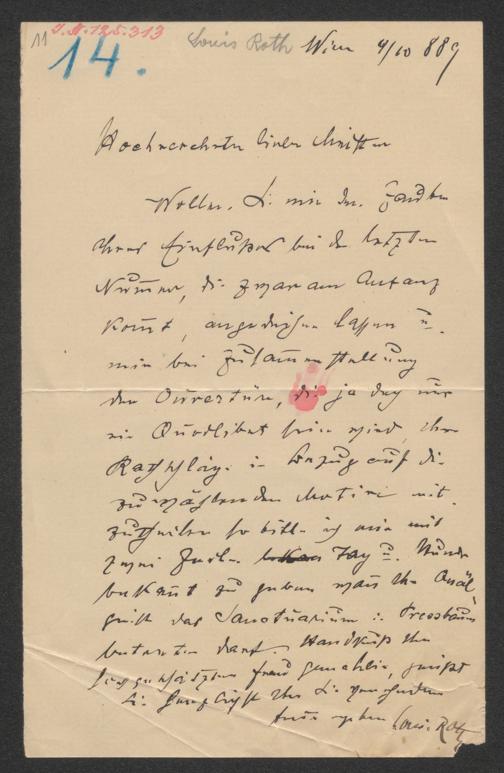 11 I.N. 125.313
14.
Louis Roth Wien 4/10 889
Hochverehrter lieber Meister
Wollen Sie mir den Zauber
Ihres Einflußes bei der letzten
Numer, die zwar am Anfang
komt, angedeihen lassen u.
mir bei Zusamenstellung
der Ouverture, die ja doch nur
ein Quodlibet sein wird, Ihre
Rathschläge in Bezug auf die
zu wählenden Motive mit
zutheilen so bitte ich mir mit
zwei Zeilen Tag u. Stunde
bekant zu geben wan Ihr
das Sanctuarium
betreten darf. Handkuß Ihrer
hochgeschätzten Frau Gemahlin, grüßt
Sie herzlichst Ihr Sie verehrender
Louis Roth